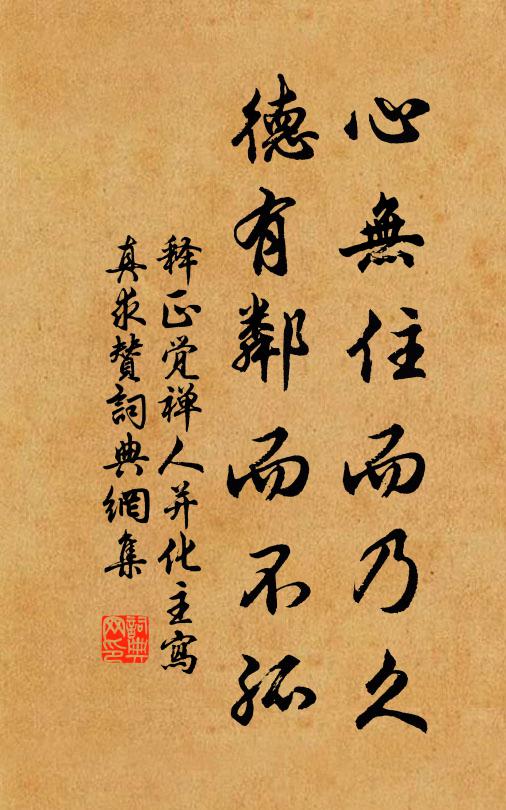 心無住而乃久
德有鄰而不孤
释正觉禅人并化主寫
真求贊詞典網集
詞典網印